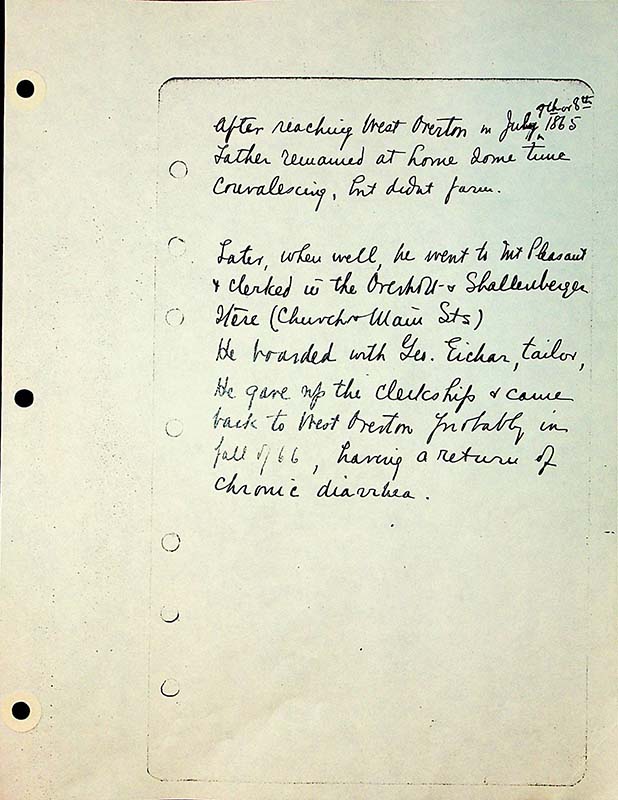 7th or 8th
After reaching West Overton in July, 1865
Father remained at home some time
convalescing, but didnt farm.
Later, when well, he went to Mt Pleasant
& clerked in the Overholt & Shallenberger
Store (Church & Main Sts)
He boarded with Geo. Eichar, tailor,
He gave up the clerkship & came
back to West Overton probably in
fall of 66, having a return of
chronic diarrhea.